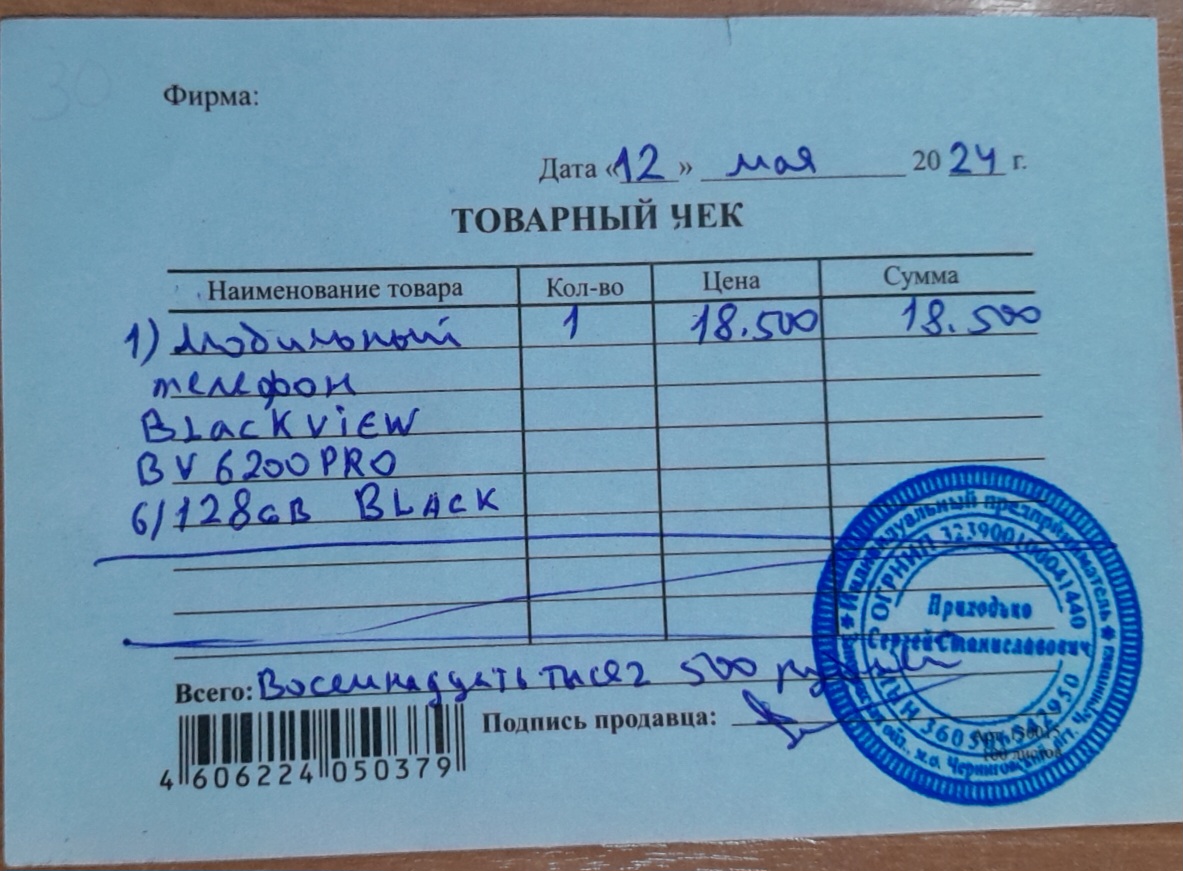 30
Фирма:
Дата «12» мая 2024 г.
ТОВАРНЫЙ ЧЕК
Наименование товара Кол-во Цена Сумма
1) Мобильный 1 18.500 18.500
телефон
BLackViEW
BV 6200PRO
6/128GB BLACK
Всего: Восемнадцать тысяч 500 рублей
Подпись продавца:
4 606224 050379
Индивидуальный предприниматель
ОГРНИП 323900100041440
Приходько
Сергей Станиславович
ИНН
100 листов